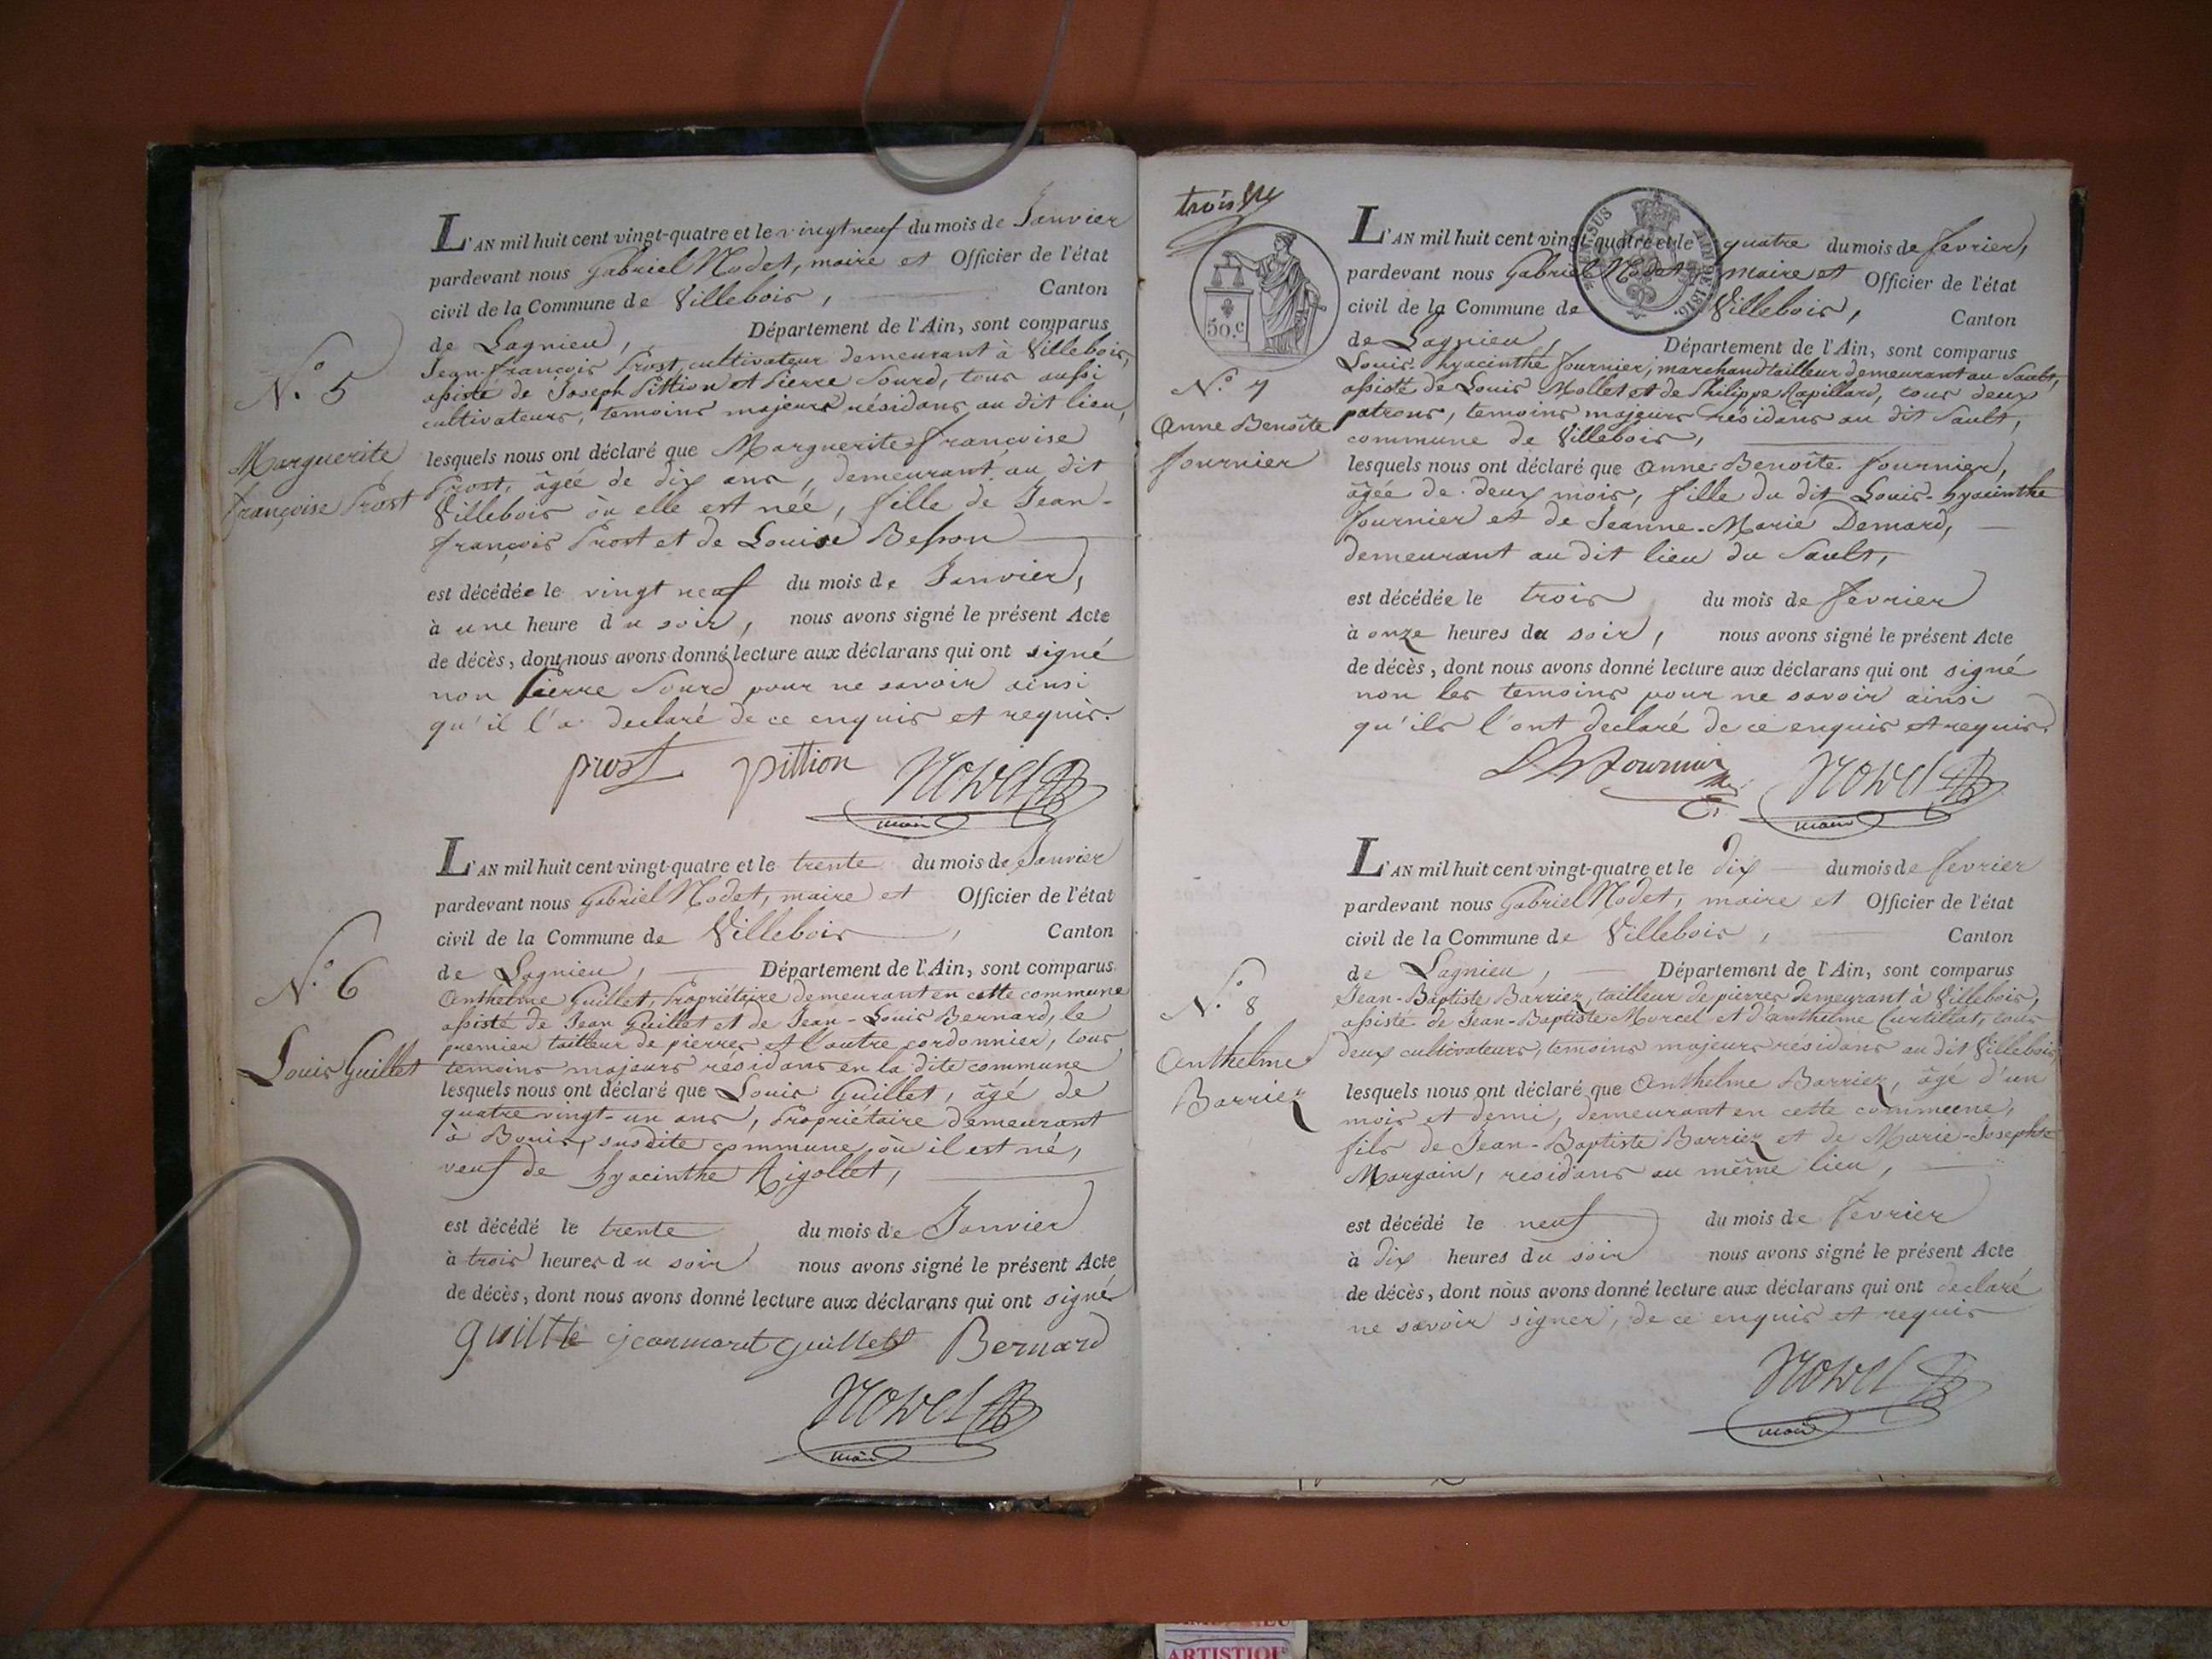 L'AN mil huit cent vingt-quatre et le vingt neuf du mois de Janvier
pardevant nous Gabriel Nodet, maire et Officier de l'état
civil de la Commune de Villebois, Canton
de Lagnieu, Département de l'Ain, sont comparus
Jean-françois Prost, cultivateur demeurant à Villebois,
assisté de Joseph Pittion et Pierre Sourd, tous aussi
cultivateurs, temoins majeurs résidans au dit lieu,
N.° 5
Marguerite
françoise Prost
lesquels nous ont déclaré que Marguerite-françoise
Prost, âgée de dix ans, demeurant au dit
Villebois où elle est née, fille de Jean-
françois Prost et de Louise Besson
est décédée le vingt neuf du mois de Janvier,
à une heure du soir, nous avons signé le présent Acte
de décès, dont nous avons donné lecture aux déclarans qui ont signé
non Pierre Sourd pour ne savoir ainsi
qu'il l'a declaré de ce enquis et requis.
prost pittion Nodet
maire
L'AN mil huit cent vingt-quatre et le trente du mois de Janvier
pardevant nous Gabriel Nodet, maire et Officier de l'état
civil de la Commune de Villebois, Canton
de Lagnieu, Département de l'Ain, sont comparus
Anthelme Guillet, Propriétaire demeurant en cette commune
assisté de Jean Guillet et de Jean-Louis Bernard, le
premier tailleur de pierres et l'autre cordonnier, tous
temoins majeurs résidans en la dite commune
N.° 6
Louis Guillet
lesquels nous ont déclaré que Louis Guillet, âgé de
quatre vingt-un ans, Propriétaire demeurant
à Bouis, susdite commune, où il est né,
veuf de hyacinthe Rigollet,
est décédé le trente du mois de Janvier
à trois heures du soir nous avons signé le présent Acte
de décès, dont nous avons donné lecture aux déclarans qui ont signé
Guillet Bernard
Nodet
maire
trois
50.c
L'AN mil huit cent vingt-quatre et le quatre du mois de fevrier,
pardevant nous Gabriel Nodet, maire et Officier de l'état
civil de la Commune de Villebois, Canton
de Lagnieu, Département de l'Ain, sont comparus
Louis-hyacinthe fournier, marchand tailleur demeurant au Sault,
assisté de Louis Mollet et de Philippe Rapillard, tous deux
patrons, temoins majeurs résidans au dit Sault,
commune de Villebois,
N.° 7
Anne Benoîte
fournier
lesquels nous ont déclaré que Anne-Benoîte fournier,
âgée de deux mois, fille du dit Louis-hyacinthe
fournier et de Jeanne-Marie Demard,
demeurant au dit lieu du Sault,
est décédée le trois du mois de fevrier
à onze heures du soir, nous avons signé le présent Acte
de décès, dont nous avons donné lecture aux déclarans qui ont signé
non les temoins pour ne savoir ainsi
qu'ils l'ont declaré de ce enquis et requis.
fournier Nodet
maire
L'AN mil huit cent vingt-quatre et le dix du mois de fevrier
pardevant nous Gabriel Nodet, maire et Officier de l'état
civil de la Commune de Villebois, Canton
de Lagnieu, Département de l'Ain, sont comparus
Jean-Baptiste Barriez, tailleur de pierres demeurant à Villebois,
assisté de Jean-Baptiste Morcel et d'anthelme Curtillat, tous
deux cultivateurs, temoins majeurs résidans au dit Villebois,
N.° 8
Anthelme
Barriez
lesquels nous ont déclaré que Anthelme Barriez, âgé d'un
mois et demi, demeurant en cette commune,
fils de Jean-Baptiste Barriez et de Marie-Josephte
Margain, residans au même lieu,
est décédé le neuf du mois de fevrier
à dix heures du soir nous avons signé le présent Acte
de décès, dont nous avons donné lecture aux déclarans qui ont declaré
ne savoir signer, de ce enquis et requis
Nodet
maire
ARTISTIQUE